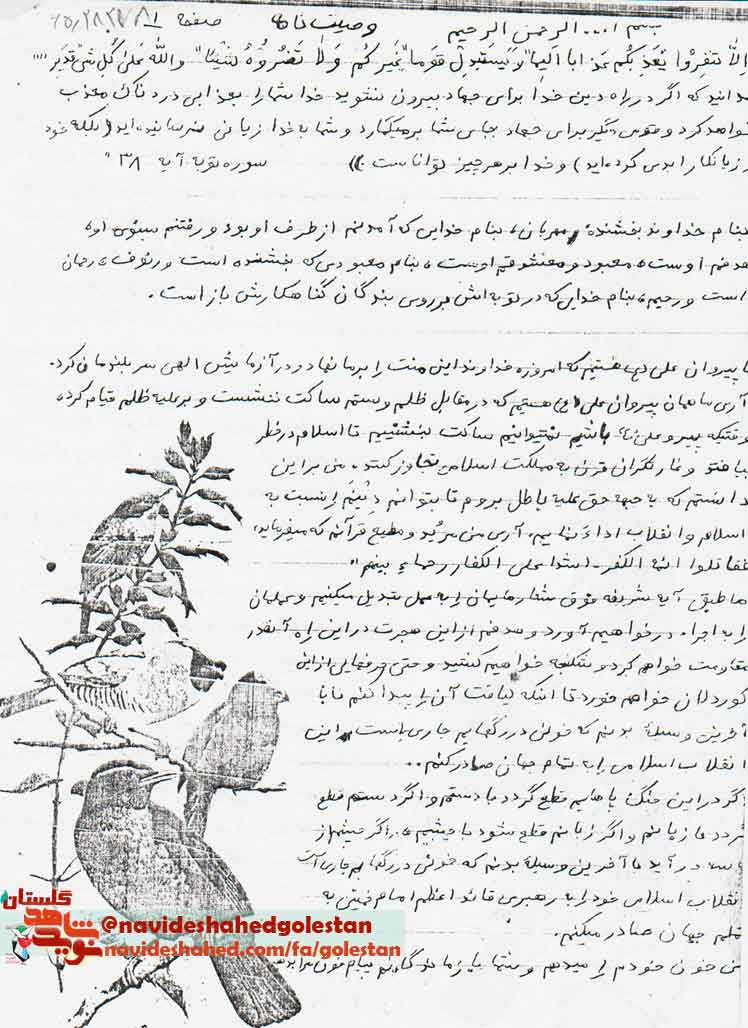 بسم ا... الرحمن الرحیم وصیت نامه صفحه ۱
اِلاّ تَنفِرُوا یُعَذِّبکُم عَذاباً اَلیماً وَ یَستَبدِل قَوماً غَیرَکُم وَلا تَضُرُّوهُ شَیئاً وَاللهُ عَلی کُلِّ شَیٍ قَدیر
بدانید که اگر در راه دین خدا برای جهاد بیرون نشوید خدا شما را بعذابی دردناک معذب
خواهد کرد و قومی دیگر برای جهاد بجای شما برمیگمارد و شما بخدا زیانی نرسانیده‌اید (بلکه خود
را زیانکار ابدی کرده‌اید) و خدا بر هر چیز تواناست)) سوره توبه آیه ۳۸
بنام خداوند بخشنده و مهربان، بنام خدایی که آمدنم از طرف او بود و رفتنم بسوی اوه
هدفم اوست، معبود و معشوقم اوست، بنام معبودی که بخشنده است و رئوف، رحمان
است و رحیم، بنام خدایی که در توبه‌اش بر روی بندگان گناهکارش باز است.
ما پیروان علی (ع) هستیم که امروزه خداوند این منت را بر ما نهاد و در آزمایش الهی سربلندمان کرد.
آری ما همان پیروان علی (ع) هستیم که در مقابل ظلم و ستم ساکت ننشست و بر علیه ظلم قیام کرد،
وقتیکه پیرو علی (ع) باشیم نمیتوانیم ساکت بنشینیم تا اسلام در خطر
بیافتد و غارتگران قرن به مملکت اسلامی تجاوز کنند. من بر این
دانستم که به جبهه حق علیه باطل بروم تا بتوانم دِینَم را نسبت به
اسلام و انقلاب اداء نمایم، آری من مرید و مطیع قرآنم که میفرماید،
فقاتلوا ائمة الکفر. اشداء علی الکفار رحماء بینهم"
ما طبق آیه شریفه فوق شعارهایمان را به عمل تبدیل میکنیم و عملمان
را به اجراء در خواهیم آورد و هدفم از این هجرت در این راه آنقدر
مقاومت خواهم کرد و شکنجه خواهیم کشید و حتی
کوردلان خواهم خورد تا اینکه لیاقت آن را پیدا کنم تا با
آخرین وسیله بدنم که خونی در رگهایم جاری است، این
انقلاب اسلامی را به تمام جهان صادر کنم..
اگر در این جنگ پاهایم قطع گردد با دستم و اگر دستم قطع
گردد با زبانم و اگر زبانم قطع شود با چشمم، اگر چشمم از
در آید با آخرین وسیله بدنم که خونی در رگهایم جاری است
انقلاب اسلامی خود را به رهبری قائد اعظم امام خمینی به
تمام جهان صادر میکنم.
من خون خودم را میدهم و شما بازماندگانم پیام خون مرا
گلستان
نوید شاهد
@navideshahedgolestan
navideshahed.com/fa/golestan